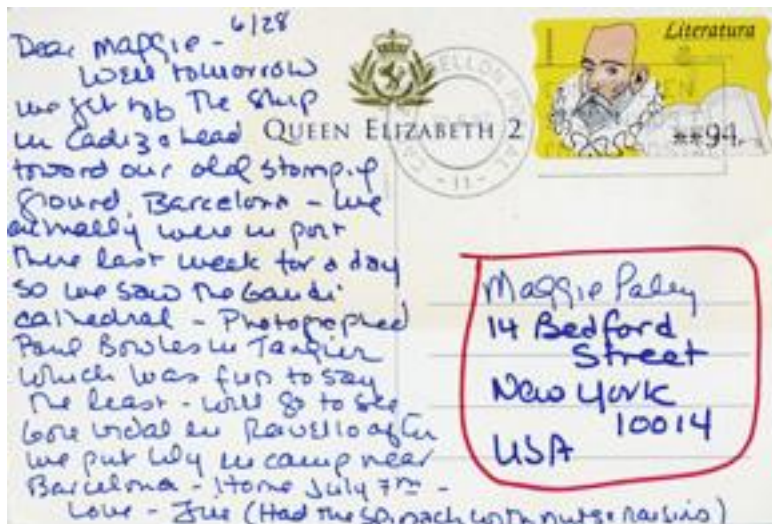 6/28
Dear Maggie -
Well tomorrow
we get off the ship
in Cadiz & head
toward our old stamping
ground, Barcelona - we
actually were in port
there last week for a day
so we saw the Gaudi
cathedral - Photographed
Paul Bowles in Tangier
which was fun to say
the least - will go to see
Gore Vidal in Ravello after
we put Lily in camp near
Barcelona - Home July 7th -
Love - (Had the spinach with nuts & raisins)
QUEEN ELIZABETH 2
Literatura
**94
- 11 -
Maggie Paley
14 Bedford
Street
New York
10014
USA